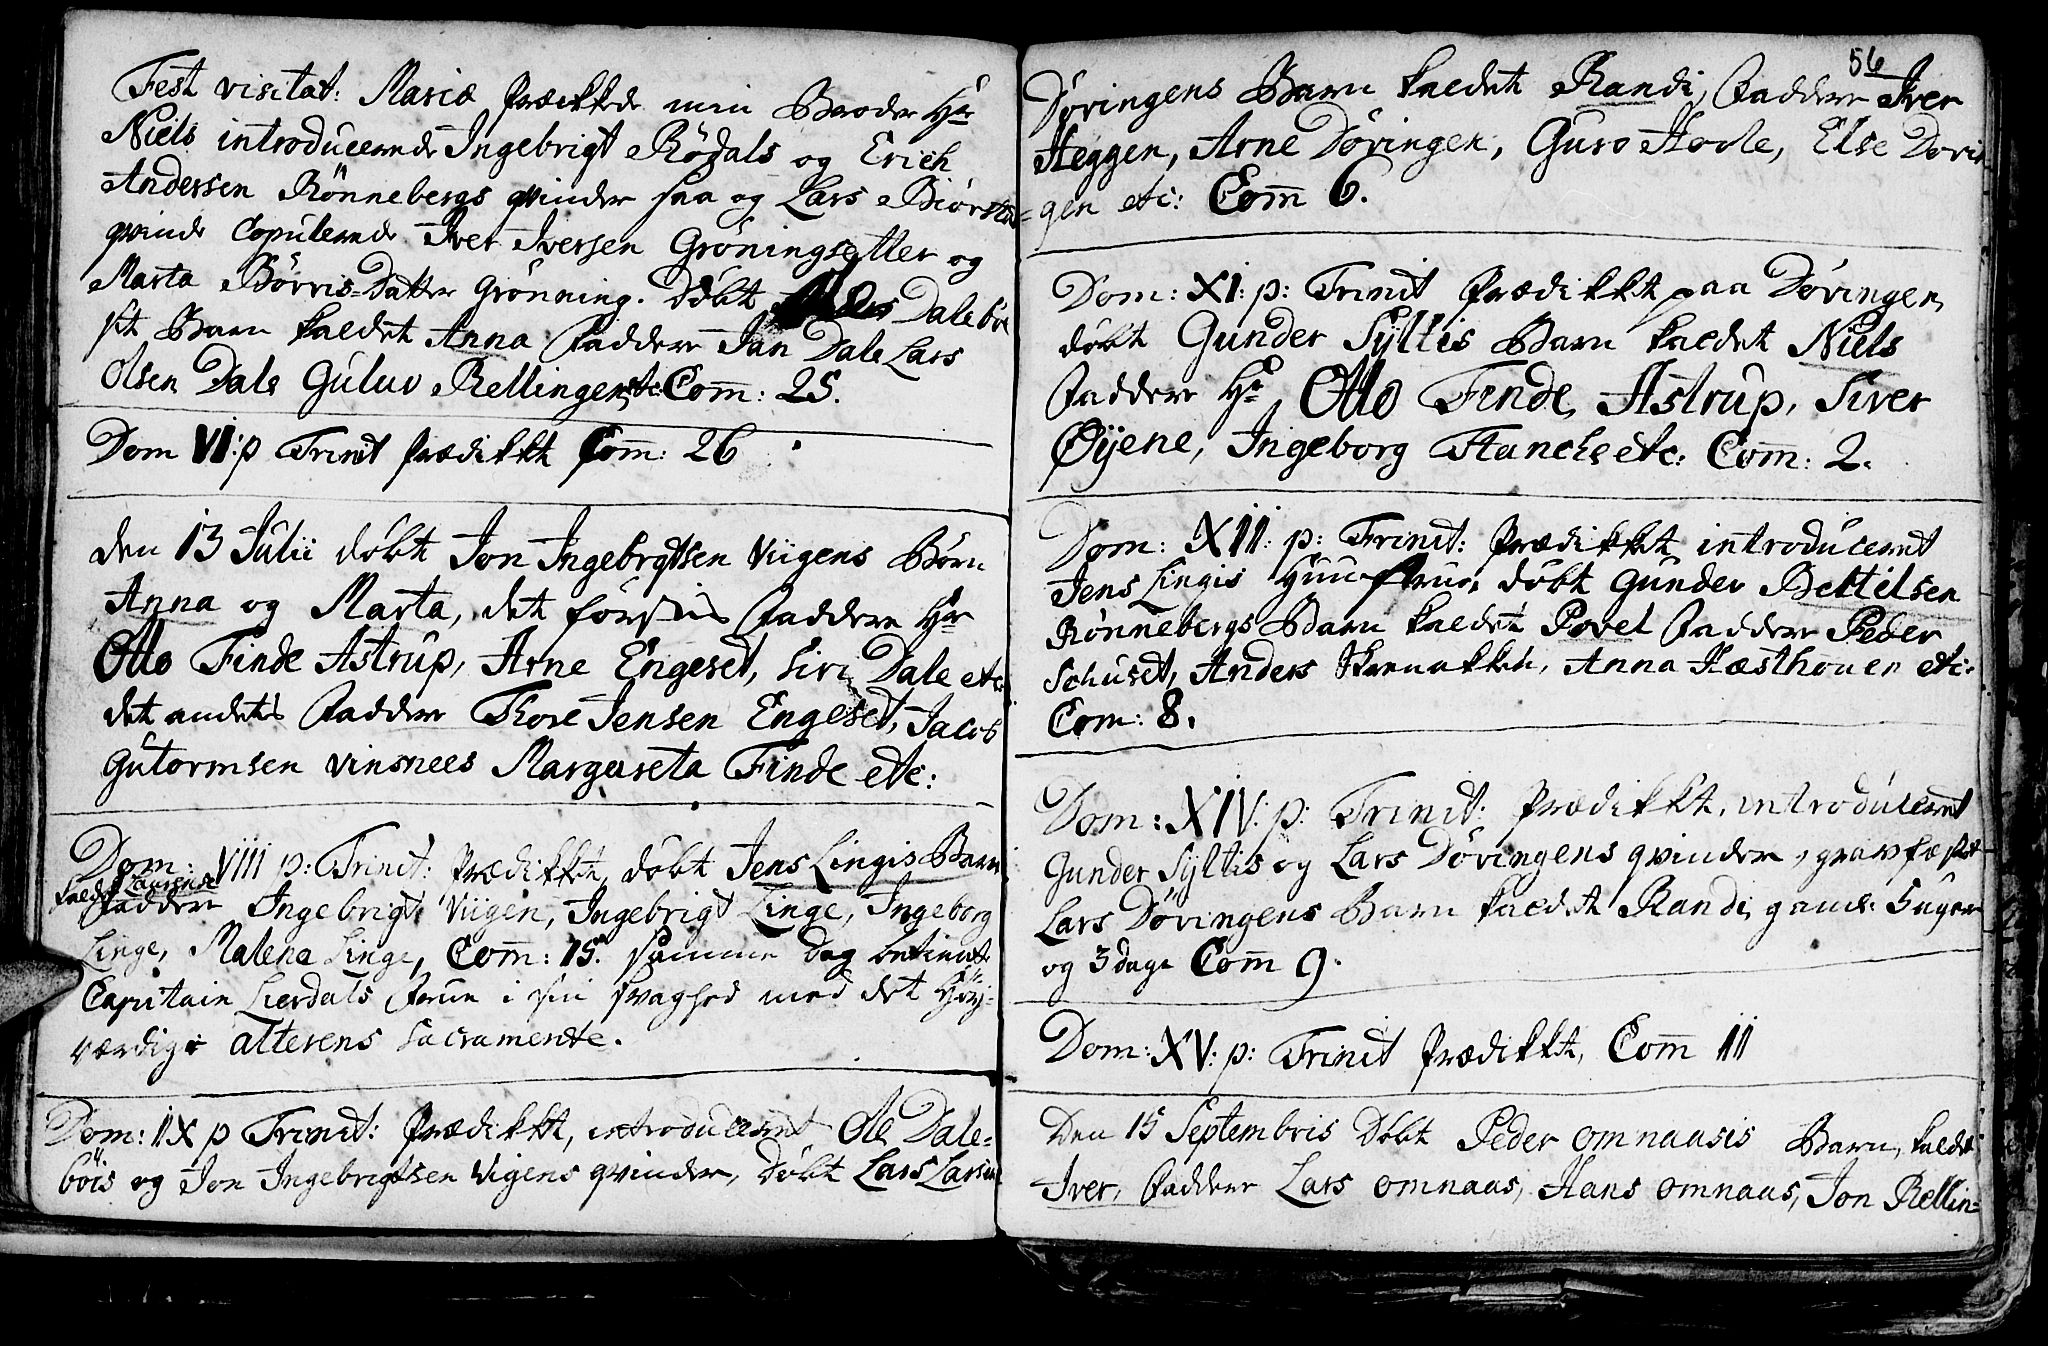 Fest visitat: Mariæ Prædikede min Broder Hr
Niels introducerede Ingebrigt Rödals og Erich
Andersen Rönnebergs qvinder saa og Lars Biörstad
qvinde Copulerede Iver Iversen Gröningsetter og
Marta Börris-Datter Grönning. Döbt Dalebö
sit Barn kaldet Anna Faddere Jan Dale Lars
Olsen Dale Guluv Rellingen etc: Com: 25.
Dom VI: p Trinit Prædikket Com: 26
den 13 Julii döbt Jon Ingebrgtsen Viigens Börn
Anna og Marta, det förstes Faddere Hr
Otto Finde Astrup, Arne Engeset, Siri Dale etc:
det andetes Faddere Thore Jensen Engeset, Jacob
Gutormsen Vinsnees Margareta Finde etc:
Dom: VIII p: Trinit: Prædikket, döbt Jens Lingis Barn
kaldet Laurense
Faddere Ingebrigt Viigen, Ingebrigt Linge, Ingeborg
Linge, Malena Linge, Com: 15. Samme Dag betient
Capitain Lierdals Frue i sin svaghed med det Höy-
værdige alterens Sacramente.
Dom: IX p Trinit: Prædikket, introduceret Ole Dale-
böis og Jon Ingebrigtsen Vigens qvinder, Döbt Lars Larsen
56
Dövingens Barn kaldet Randi, Faddere Iver
Heggen, Arne Dövingen, Guro Hovle, Else Dövin
gen etc: Com 6.
Dom: XI: p: Trinit Prædikket paa Dövingen,
döbt Gunder Syltis Barn kaldet Niels
Faddere Hr Otto Finde, Astrup, Siver
Øyene, Ingeborg Stanche etc: Com: 2.
Dom: XII: p: Trinit: Prædikket, introduceret
Jens Lingis Huustrue, döbt Gunder Bettelsen
Rönnebergs Barn kaldet Povel Faddere Peder
Schuset, Anders Anna Hæsthouen etc:
Com: 8.
Dom: XIV: p: Trinit: Prædikket, introduceret
Gunder Syltis og Lars Dövingens qvinder, gravfæstet
Lars Dövingens Barn kaldet Randi, gamel 5 uger
og 3 dage Com 9.
Dom: XV: p: Trinit Prædikket, Com 11
Den 15 Septembris Döbt Peder Omnaasis Barn, kaldet
Iver, Faddere Lars Omnaas, Hans Omnaas, Jon Rellin-